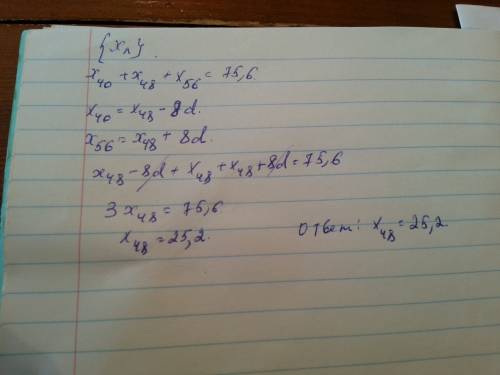 {xₙ}.
x₄₀ + x₄₈ + x₅₆ = 75,6.
x₄₀ = x₄₈ - 8d.
x₅₆ = x₄₈ + 8d.
x₄₈ - 8d + x₄₈ + x₄₈ + 8d = 75,6
3x₄₈ = 75,6
x₄₈ = 25,2.
Ответ: x₄₈ = 25,2.